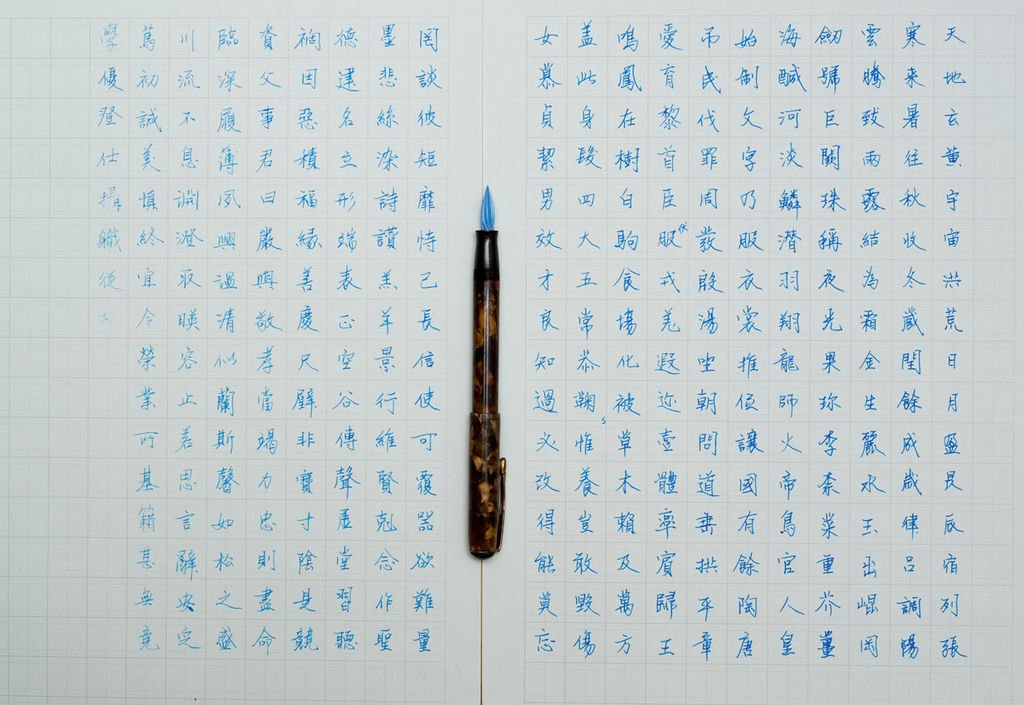 天地玄黄宇宙洪荒日月盈昃辰宿列張
寒来暑往秋收冬藏閏餘成歲律呂調陽
雲騰致雨露結為霜金生麗水玉出崐岡
劔號巨闕珠稱夜光果珍李柰菜重芥薑
海鹹河淡鱗潛羽翔龍師火帝鳥官人皇
始制文字乃服衣裳推位讓國有餘陶唐
吊民伐罪周發殷湯坐朝問道垂拱平章
愛育黎首臣服伏戎羌遐迩壹體率賓歸王
鳴鳳在樹白駒食場化被草木賴及萬方
盖此身髮四大五常恭鞠惟養豈敢毀傷
女慕貞絜男效才良知過必改得能莫忘
罔談彼短靡恃己長信使可覆器欲難量
墨悲絲染詩讃羔羊景行維賢剋念作聖
德建名立形端表正空谷傳聲虛堂習聽
禍因惡積福緣善慶尺璧非寶寸陰是競
資父事君曰嚴與敬孝當竭力忠則盡命
臨深履薄夙興溫清似蘭斯馨如松之盛
川流不息淵澄取暎容止若思言辭安定
篤初誠美慎終宜令榮業所基籍甚無竟
學優登仕攝職從政